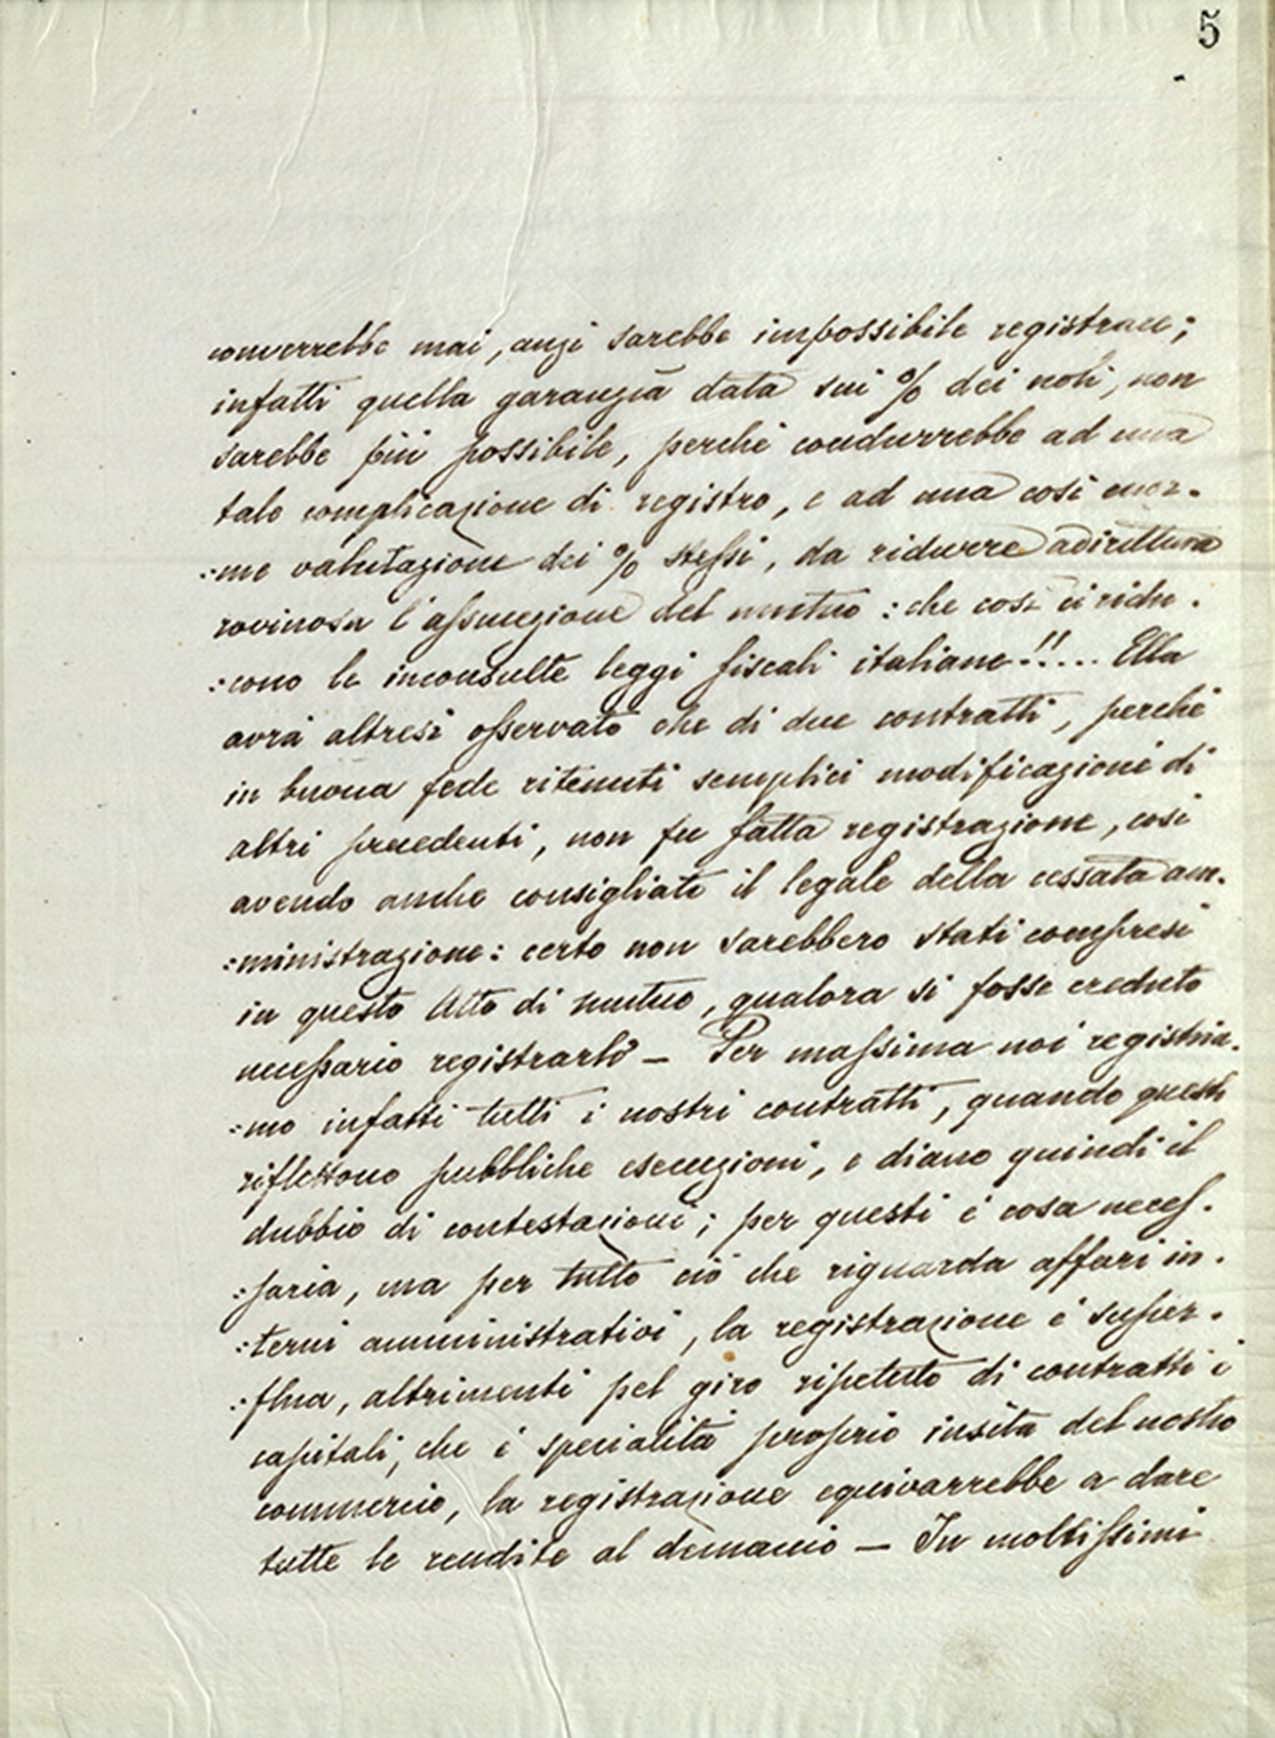 5
converrebbe mai, anzi sarebbe impossibile registrare;
infatti quella garanzia data sui % dei noli, non
sarebbe più possibile, perchè condurrebbe ad una
tale complicazione di registro, e ad una così enor-
:me valutazione dei % stessi, da ridurre adirittura
rovinosa l'assunzione del mutuo: che così ci ridu-
:cono le inconsulte leggi fiscali italiane!!... Ella
avrà altresì osservato che di due contratti, perchè
in buona fede ritenuti semplici modificazioni di
altri precedenti, non fu fatta registrazione, così
avendo anche consigliato il legale della cessata am-
:ministrazione: certo non sarebbero stati compresi
in questo Atto di mutuo, qualora si fosse creduto
necessario registrarli — Per massima noi registria-
:mo infatti tutti i nostri contratti, quando questi
riflettono pubbliche esecuzioni, e diano quindi il
dubbio di contestazioni; per questi è cosa neces-
:saria, ma per tutto ciò che riguarda affari in-
:terni amministrativi, la registrazione è super-
:flua, altrimenti pel giro ripetuto di contratti e
capitali, che è specialità proprio insita del nostro
commercio, la registrazione equivarrebbe a dare
tutte le rendite al demanio — In moltissimi